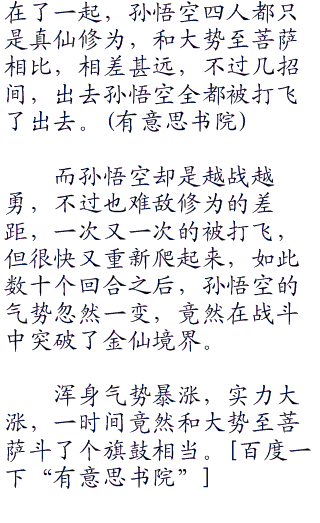 在了一起，孙悟空四人都只
是真仙修为，和大势至菩萨
相比，相差甚远，不过几招
间，出去孙悟空全都被打飞
了出去。(有意思书院)
而孙悟空却是越战越
勇，不过也难敌修为的差
距，一次又一次的被打飞，
但很快又重新爬起来，如此
数十个回合之后，孙悟空的
气势忽然一变，竟然在战斗
中突破了金仙境界。
浑身气势暴涨，实力大
涨，一时间竟然和大势至菩
萨斗了个旗鼓相当。[百度一
下“有意思书院”]